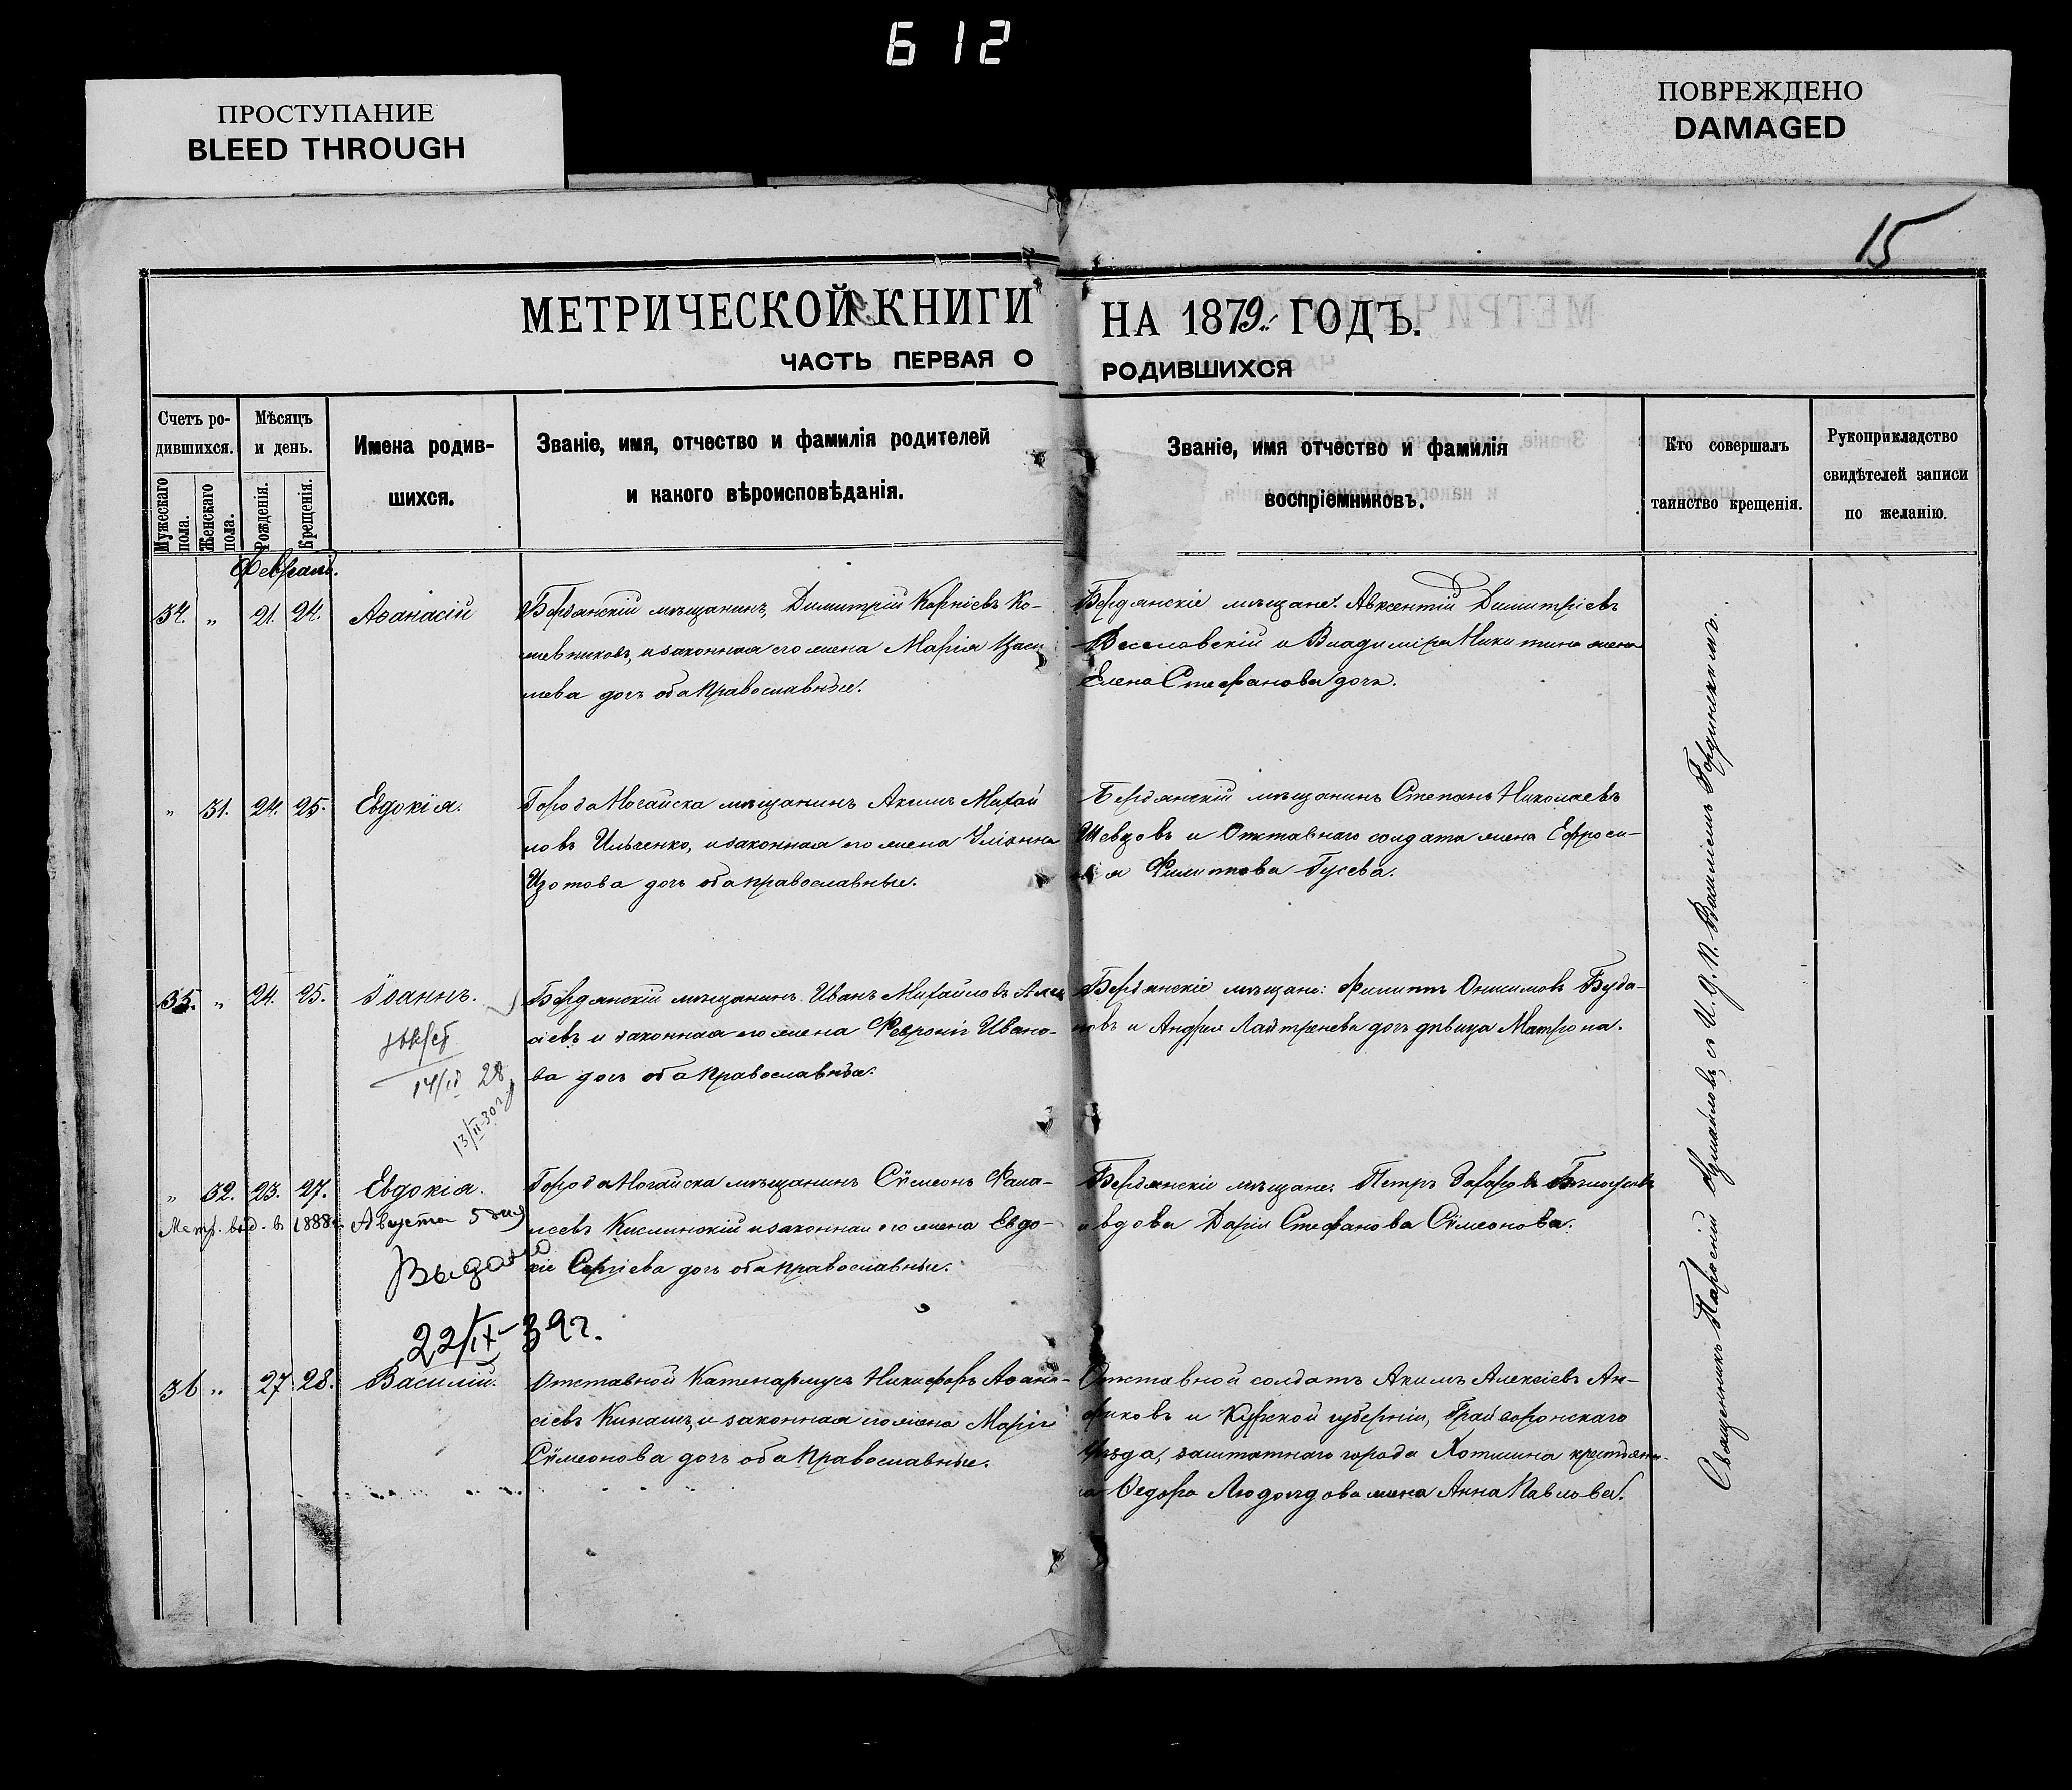 612
ПРОСТУПАНИЕ
BLEED THROUGH
ПОВРЕЖДЕНО
DAMAGED
15
МЕТРИЧЕСКОЙ КНИГИ НА 1879 ГОДЪ.
ЧАСТЬ ПЕРВАЯ О РОДИВШИХСЯ
Счетъ ро-
дившихся.
Мужескаго
пола.
Женскаго
пола.
Мѣсяцъ
и день.
Рожденія.
Крещенія.
Имена родив-
шихся.
Званіе, имя, отчество и фамилія родителей
и какого вѣроисповѣданія.
Званіе, имя отчество и фамилія
воспріемниковъ.
Кто совершалъ
таинство крещенія.
Рукоприкладство
свидѣтелей записи
по желанію.
Февраль.
34. „ 21. 24. Аѳанасій
Бердянскій мѣщанинъ, Димитрій Корніевъ Ко-
и законная его жена Марія
дочь оба Православные.
Бердянскіе мѣщане: Авксентій Димитріевъ
Веселовскій и Владиміра Никитина жена
Елена Стефанова дочь.
„ 31. 24. 25. Евдокія.
Города Ногайска мѣщанинъ Акимъ Михай
ловъ Ильченко, и законная его жена Уліанна
Изотова дочь оба православные.
Бердянскій мѣщанинъ Степанъ Николаевъ
Шевцовъ и Отставнаго солдата жена Ефроси-
нія Филиппова Гусева.
35. „ 24. 25. Іоаннъ.
14/IV 28
13/II-30г
Бердянскій мѣщанинъ Иванъ Михайловъ
и законная его жена Февронія Ивано-
ва дочь оба Православныя.
Бердянскіе мѣщане: Филиппъ Онисимовъ Буда-
новъ и Андрея дочь дѣвица Матрона.
„ 32. 23. 27. Евдокія.
Метр. выд. въ 1888 г. Августа 5 дня
Выдано
22/IX-39г.
Города Ногайска мѣщанинъ Сѵмеонъ
Кислинскій и законная его жена Евдо-
кія Сергіева дочь оба православные.
Бердянскіе мѣщане: Петръ Захаровъ
и вдова Дарія Стефанова Сѵмеонова.
36 „ 27 28. Василій.
Отставной Каптенармусъ Никифоръ Аѳана-
сіевъ Кинашъ, и законная его жена Марія
Сѵмеонова дочь оба Православные.
Отставной солдатъ Акимъ Алексіевъ Ан-
и Курской губерніи, Грайворонскаго
Уѣзда, заштатнаго города Хотмина крестьяни-
на Ѳедора жена Анна Павлова.
Священникъ Парѳеній съ И. Д. П. Василіемъ Гординскимъ.